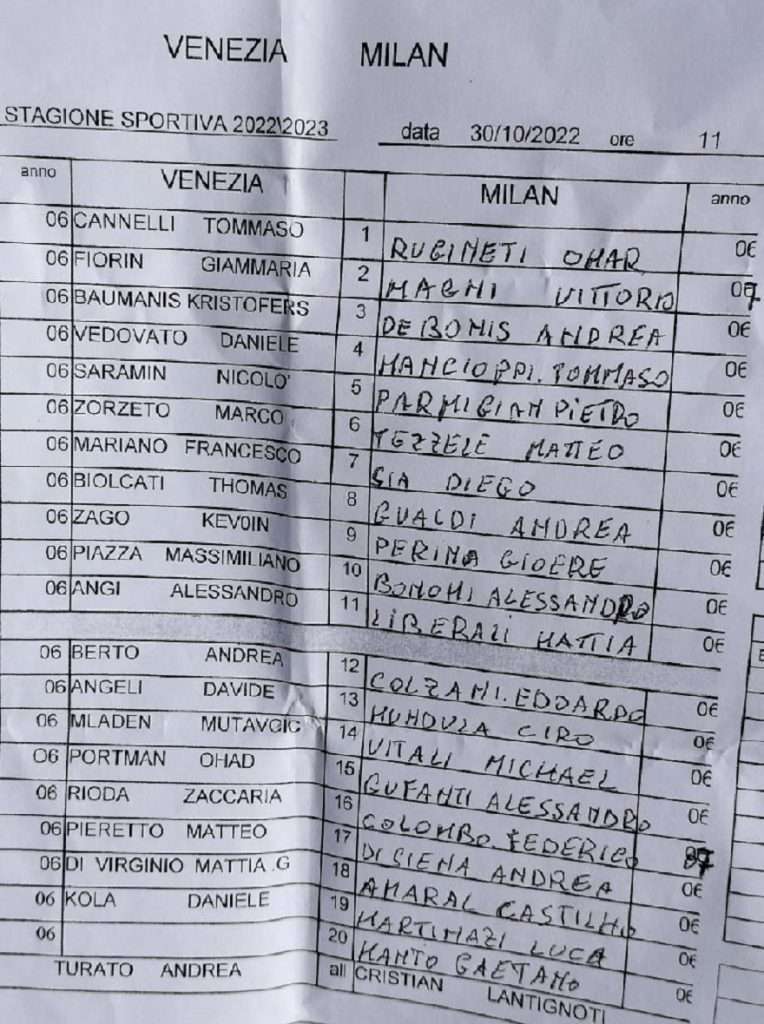 VENEZIA MILAN
STAGIONE SPORTIVA 2022\2023 data 30/10/2022 ore 11
anno VENEZIA MILAN anno
06 CANNELLI TOMMASO 1 RUGINETI OMAR 06
06 FIORIN GIAMMARIA 2 MAGNI VITTORIO 07
06 BAUMANIS KRISTOFERS 3 DE BONIS ANDREA 06
06 VEDOVATO DANIELE 4 MANCIOPPI. TOMMASO 06
06 SARAMIN NICOLO' 5 PARMIGIAN PIETRO 06
06 ZORZETO MARCO 6 TEZZELE MATTEO 06
06 MARIANO FRANCESCO 7 SIA DIEGO 06
06 BIOLCATI THOMAS 8 GUALDI ANDREA 06
06 ZAGO KEV0IN 9 PERINA GIOERE 06
06 PIAZZA MASSIMILIANO 10 BONOMI ALESSANDRO 06
06 ANGI ALESSANDRO 11 LIBERALI MATTIA 06
06 BERTO ANDREA 12 COLZANI. EDOARDO 06
06 ANGELI DAVIDE 13 CIRO 06
06 MLADEN MUTAVGIC 14 VITALI MICHAEL 06
O6 PORTMAN OHAD 15 GUFANTI ALESSANDRO 06
06 RIODA ZACCARIA 16 COLOMBO. FEDERICO 07
06 PIERETTO MATTEO 17 DI SIENA ANDREA 06
06 DI VIRGINIO MATTIA .G 18 AMARAL CASTILHO 06
06 KOLA DANIELE 19 MARTINAZI LUCA 06
06 20 MANTO GAETANO 06
TURATO ANDREA all CRISTIAN LANTIGNOTI